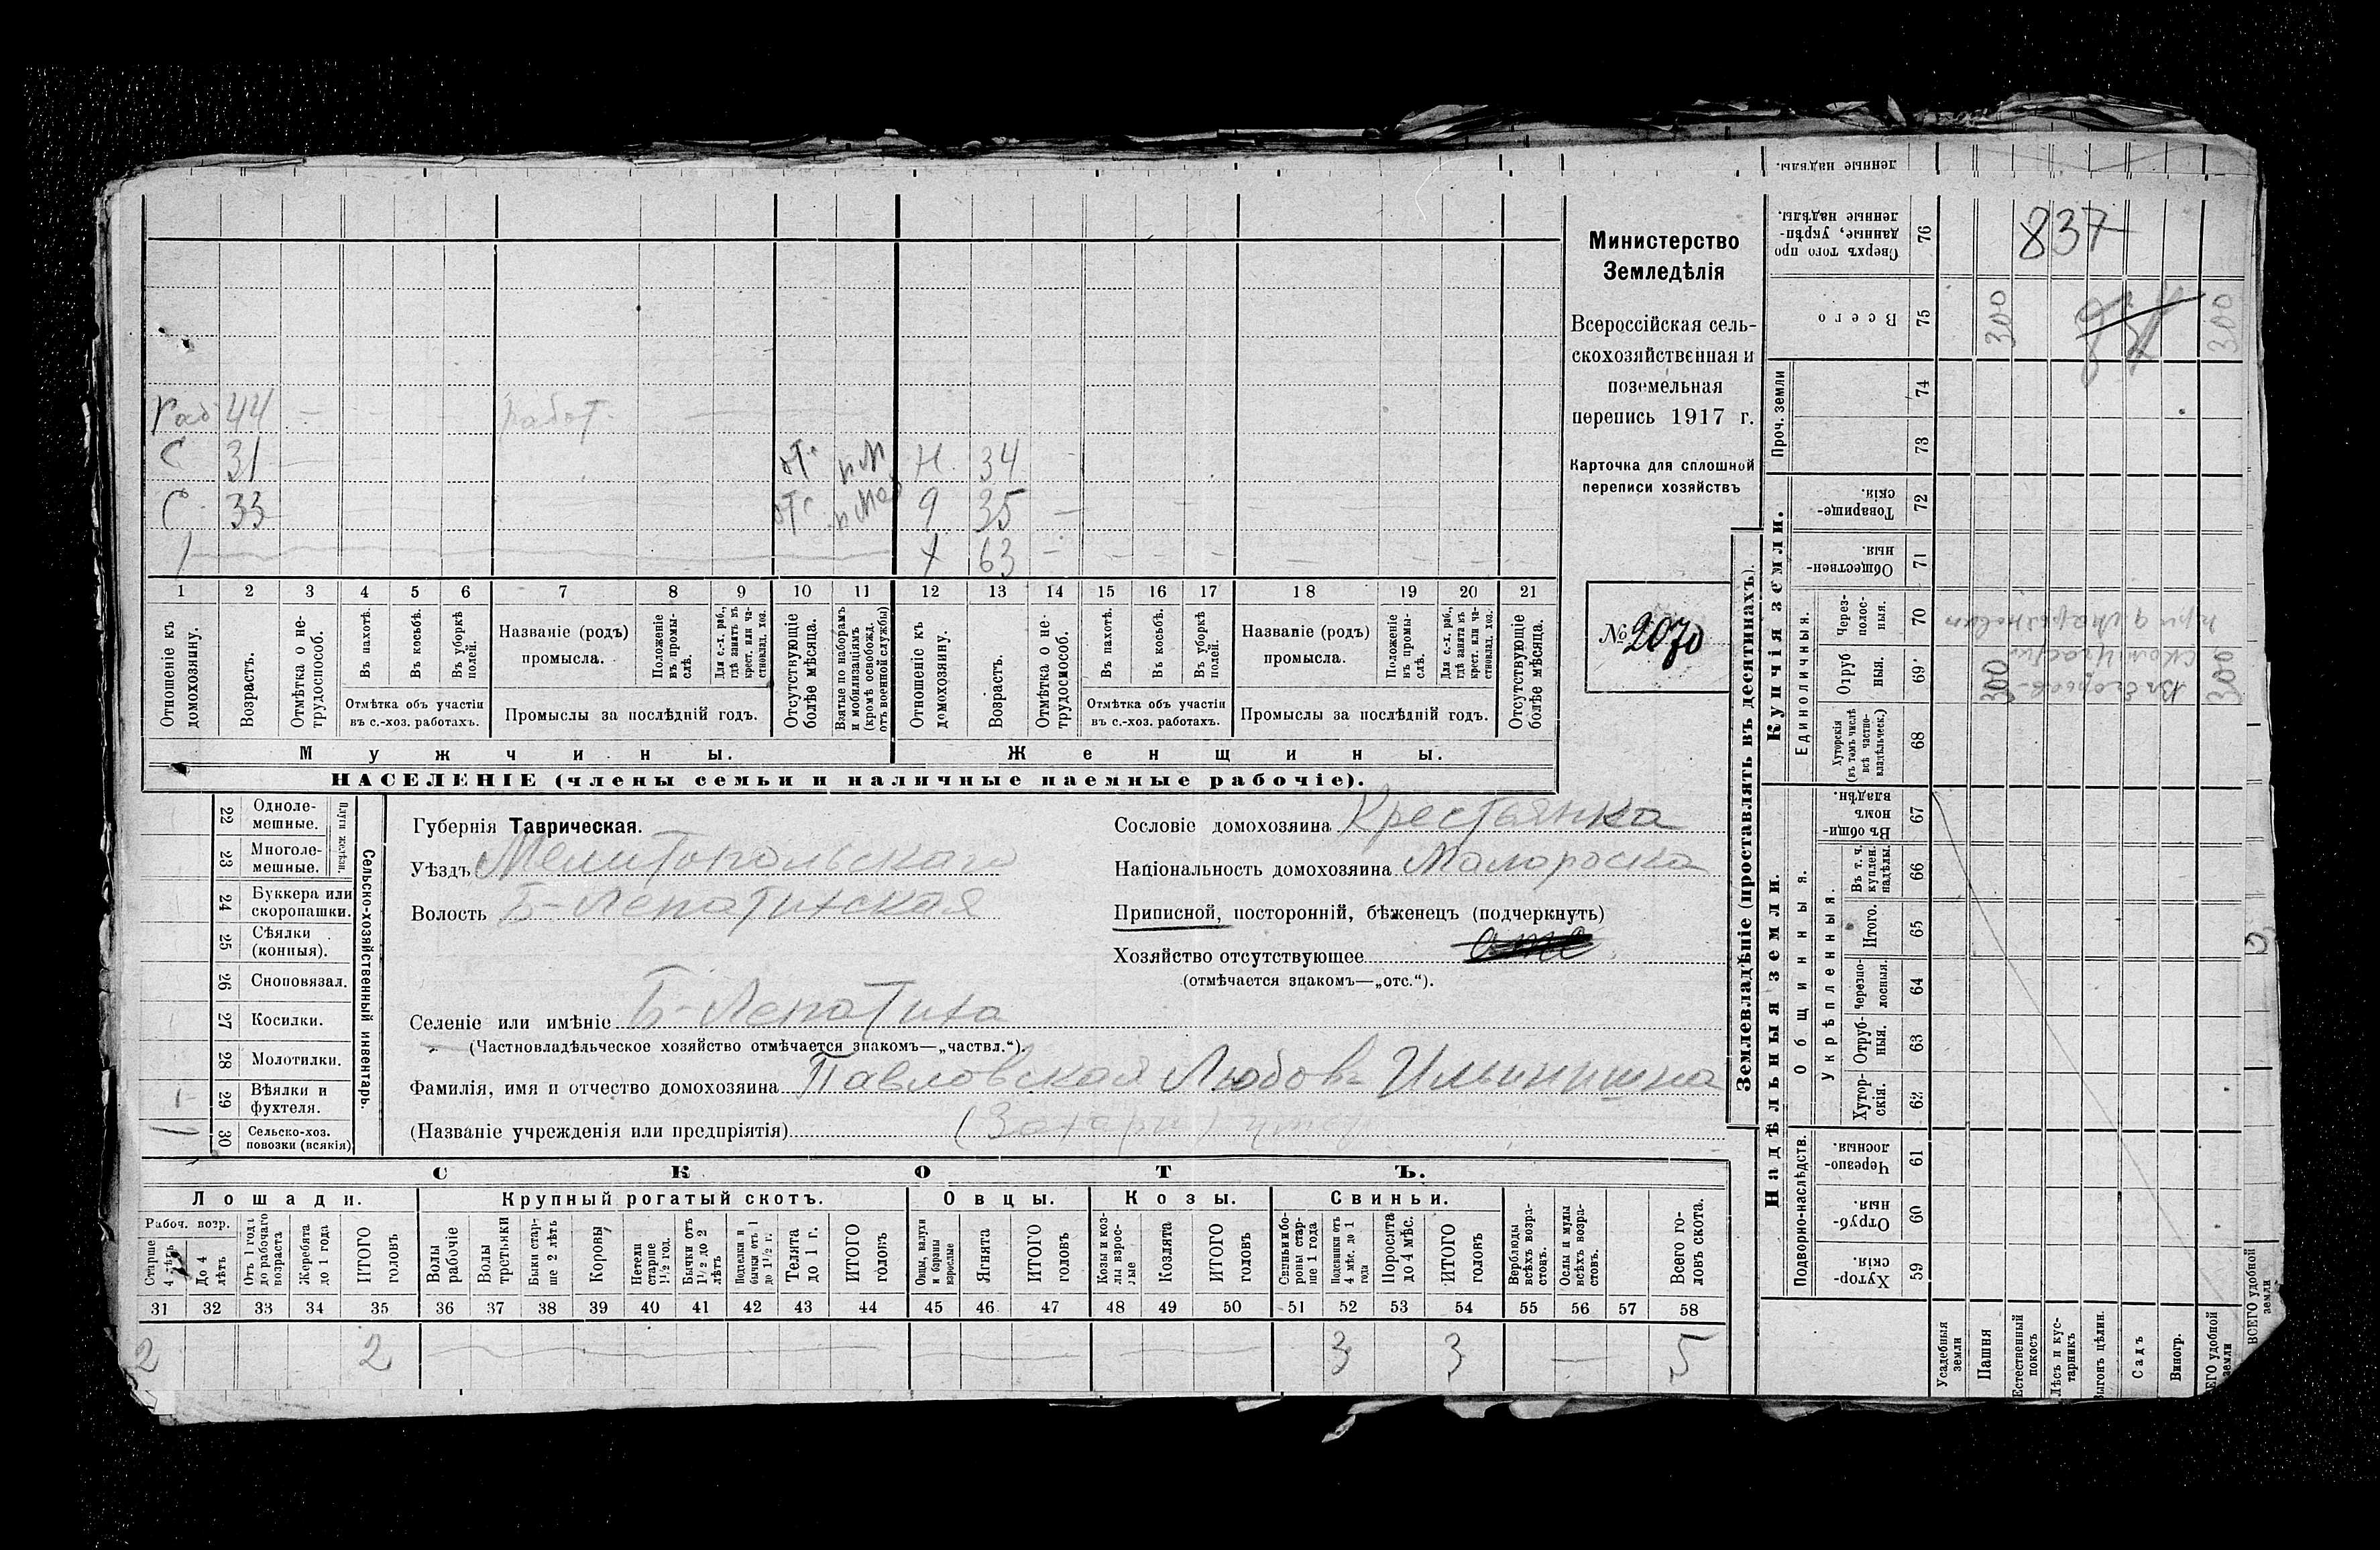 Министерство
Земледѣлія
Всероссійская сель-
скохозяйственная и
поземельная
перепись 1917 г.
Карточка для сплошной
переписи хозяйствъ
№ 2070
44 работ.
С 31 от. Н. 34
С. 33 отс. 9 35
1 63
1 2 3 4 5 6 7 8 9 10 11 12 13 14 15 16 17 18 19 20 21
Отношеніе къ домохозяину.
Возрастъ.
Отмѣтка о не-трудоспособ.
Въ пахотѣ.
Въ косьбѣ.
Въ уборкѣ полей.
Отмѣтка объ участіи
въ с.-хоз. работахъ.
Названіе (родъ)
промысла.
Положеніе въ промы-слѣ.
Для с.-х. раб., гдѣ занятъ въ крест. или ча-стновлад. хоз.
Промыслы за послѣдній годъ.
Отсутствующіе болѣе мѣсяца.
Взятые по наборамъ и мобилизаціямъ (кромѣ освобожд. отъ военной службы)
Отношеніе къ домохозяину.
Возрастъ.
Отмѣтка о не-трудоспособ.
Въ пахотѣ.
Въ косьбѣ.
Въ уборкѣ полей.
Отмѣтка объ участіи
въ с.-хоз. работахъ.
Названіе (родъ)
промысла.
Положеніе въ промы-слѣ.
Для с.-х. раб., гдѣ заняты въ крест. или ча-стновлад. хоз.
Промыслы за послѣдній годъ.
Отсутствующіе болѣе мѣсяца.
Мужчины.
Женщины.
НАСЕЛЕНІЕ (члены семьи и наличные наемные рабочіе).
22 Одноле-мешные.
23 Многоле-мешные.
Плуги желѣзн.
24 Буккера или скоропашки.
25 Сѣялки (конныя).
26 Сноповязал.
27 Косилки.
28 Молотилки.
1 29 Вѣялки и фухтеля.
30 Сельско-хоз. повозки (всякія)
Сельско-хозяйственный инвентарь.
Губернія Таврическая.
Уѣздъ Мелитопольскаго
Волость Б-Лепатихская
Сословіе домохозяина Крестьянка
Національность домохозяина Малороска
Приписной, посторонній, бѣженецъ (подчеркнуть)
Хозяйство отсутствующее отс
(отмѣчается знакомъ—„отс.“).
Селеніе или имѣніе Б-Лепатиха
(Частновладѣльческое хозяйство отмѣчается знакомъ—„частвл.“).
Фамилія, имя и отчество домохозяина Павловская Любовь Ильинишна
(Названіе учрежденія или предпріятія)
СКОТЪ.
Лошади.
Крупный рогатый скотъ.
Овцы.
Козы.
Свиньи.
Рабоч. возр.
Старше 4 лѣтъ
До 4 лѣтъ
Отъ 1 года до рабочаго возраста
Жеребята до 1 года
ИТОГО головъ
Волы рабочіе
Волы третьяки
Быки стар-ше 2 лѣтъ
Коровы
Нетели старше 1½ год.
Бычки отъ 1½ до 2 лѣтъ
Подтелки и бычки отъ 1 до 1½ г.
Телята до 1 г.
ИТОГО головъ
Овцы, валухи и бараны взрослые
Ягнята
ИТОГО головъ
Козы и коз-лы взрос-лые
Козлята
ИТОГО головъ
Свиньи и бо-ровы стар-ше 1 года
Подсвинки отъ 4 мѣс. до 1 года
Поросята до 4 мѣс.
ИТОГО головъ
Верблюды всѣхъ возра-стовъ.
Ослы и мулы всѣхъ возра-стовъ.
Всего го-ловъ скота.
31 32 33 34 35 36 37 38 39 40 41 42 43 44 45 46 47 48 49 50 51 52 53 54 55 56 57 58
2 2 3 3 5
Землевладѣніе (проставлять въ десятинахъ).
ленные надѣлы.
Сверхъ того про данные, укрѣп-ленные надѣлы. 76
837
Всего 75 300 300
Проч. земли 74 73
Купчія земли.
Товарище-скія. 72
Обществен-ныя. 71
Единоличныя.
Через-полос-ныя. 70
Отруб ныя. 69 300 300
Хуторскія (въ томъ числѣ всѣ частно-владѣльческ.) 68
Надѣльныя земли.
Въ общи-номъ владѣн. 67
Общинныя.
Укрѣпленныя.
Въ т. ч. куплен. надѣлы. 66
Итого. 65
Черезпо-лосныя. 64
Отруб-ныя. 63
Хутор-скія. 62
Подворно-наслѣдств.
Черезпо-лосныя. 61
Отруб-ныя. 60
Хутор-скія. 59
Усадебныя земли
Пашня
Естественный покосъ
Лѣсъ и кус-тарникъ
Выгонъ цѣлин.
Садъ
Виногр.
ВСЕГО удобной земли